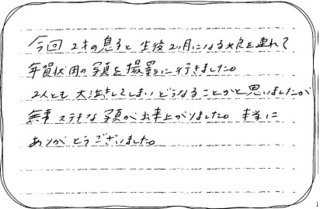 今回 2才の息子と生後2ヶ月になる娘を連れて
年賀状用の写真を撮影に行きました。
2人とも大泣きしてしまいどうなることかと思いましたが
無事ステキな写真が出来上がりました。本当に
ありがとうございました。